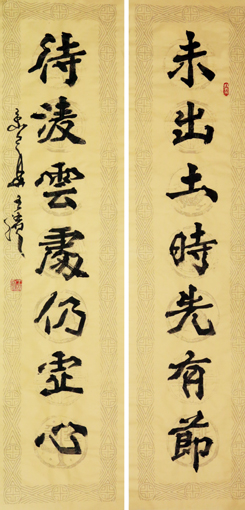 未出土時先有節
待淩雲處仍虛心